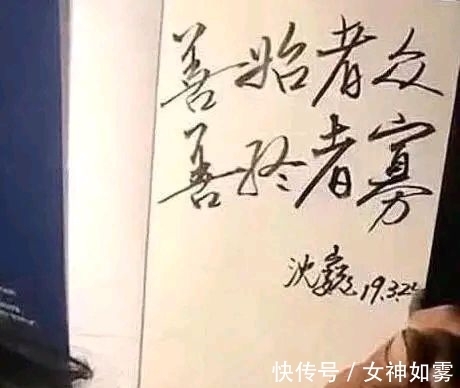 善始者众
善终者寡
沈巍 19.3.22
快传号/女神如雾